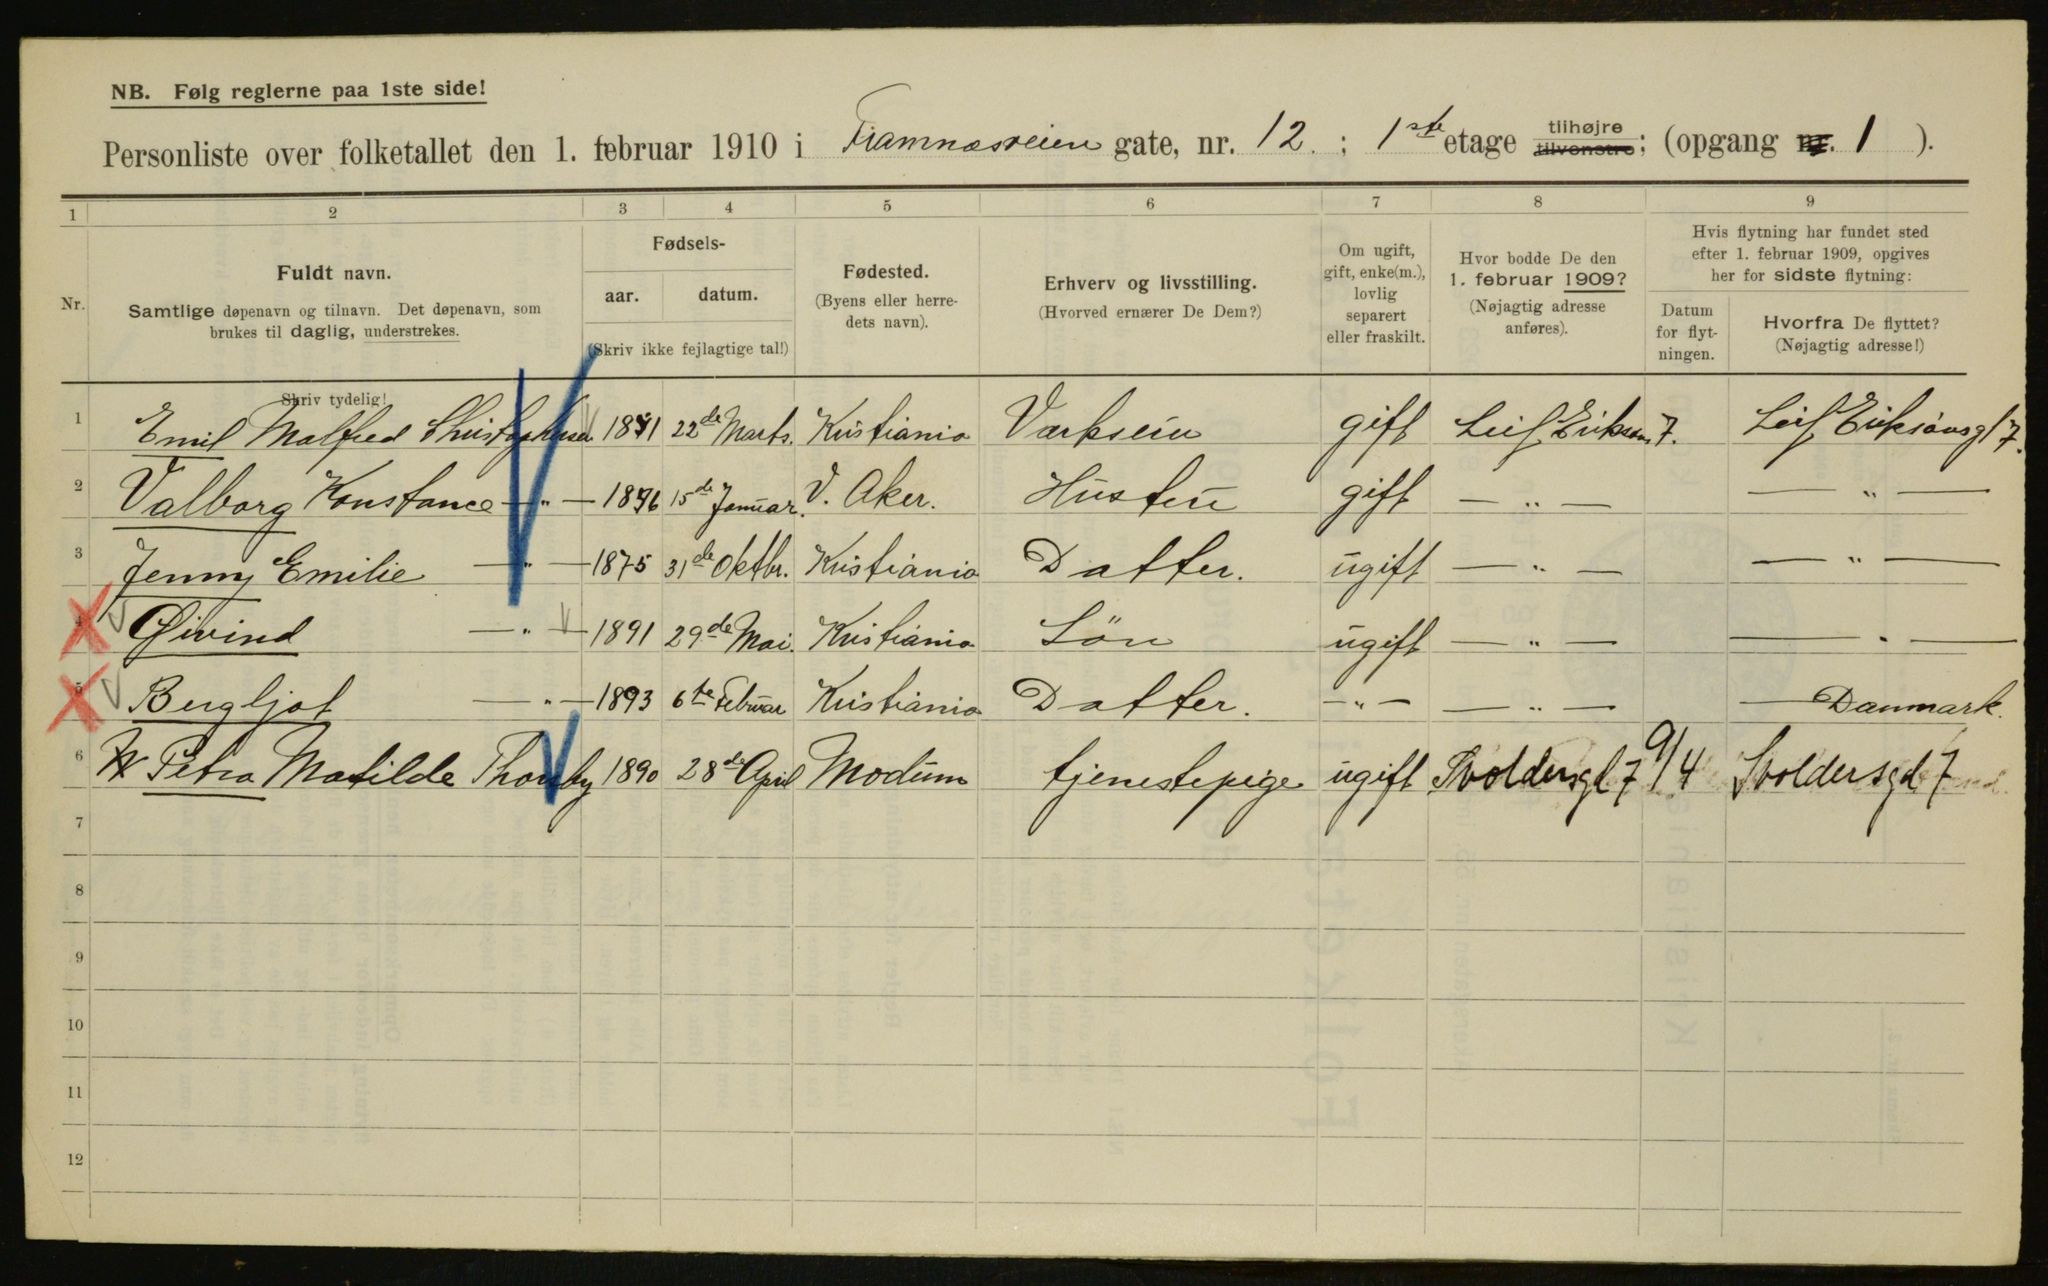 NB. Følg reglerne paa 1ste side!
Personliste over folketallet den 1. februar 1910 i Framnæsveien gate, nr. 12. ; 1ste etage tilhøjre tilvenstre; (opgang nr. 1 ).
1 2 3 4 5 6 7 8 9
Nr.
Fuldt navn.
Samtlige døpenavn og tilnavn. Det døpenavn, som
brukes til daglig, understrekes.
Fødsels-
aar. datum.
(Skriv ikke fejlagtige tal!)
Fødested.
(Byens eller herre-
dets navn).
Erhverv og livsstilling.
(Hvorved ernærer De Dem?)
Om ugift,
gift, enke(m.),
lovlig
separert
eller fraskilt.
Hvor bodde De den
1. februar 1909?
(Nøjagtig adresse
anføres).
Hvis flytning har fundet sted
efter 1. februar 1909, opgives
her for sidste flytning:
Datum
for flyt-
ningen.
Hvorfra De flyttet?
(Nøjagtig adresse!)
Skriv tydelig!
1 Emil Malfred Christophersen 22de Marts. Kristiania Værkseier gift Leif Eriksons 7. Leif Eriksønsgt 7.
2 Valborg Konstance — " — 15de Januar. V. Aker. Hustru gift — " — — " —
3 Jenny Emilie — " — 1875 31de Oktbr. Kristiania Datter. ugift — " — — " —
4 Øivind — " — 1891 29de Mai. Kristiania Søn ugift — " — — " —
5 Bergljot — " — 1893 6te Februar Kristiania Datter. — " — — " — — Danmark.
6 Petra Matilde Thonby 1890 28de April Modum tjenestepige ugift Svoldersgt 7 9/4 Svoldersgd 7
7
8
9
10
11
12